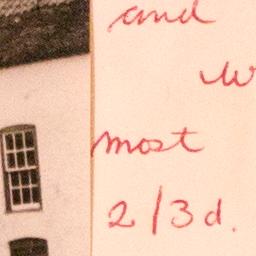 and
most
2/3d.